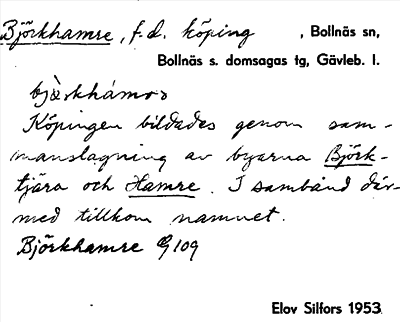 Björkhamre, f.d. köping , Bollnäs sn,
Bollnäs s. domsagas tg, Gävleb. l.
Köpingen bildades genom sam-
manslagning av byarna Björk-
tjära och Hamre. I samband där-
med tillkom namnet.
Björkhamre G 109
Elov Silfors 1953